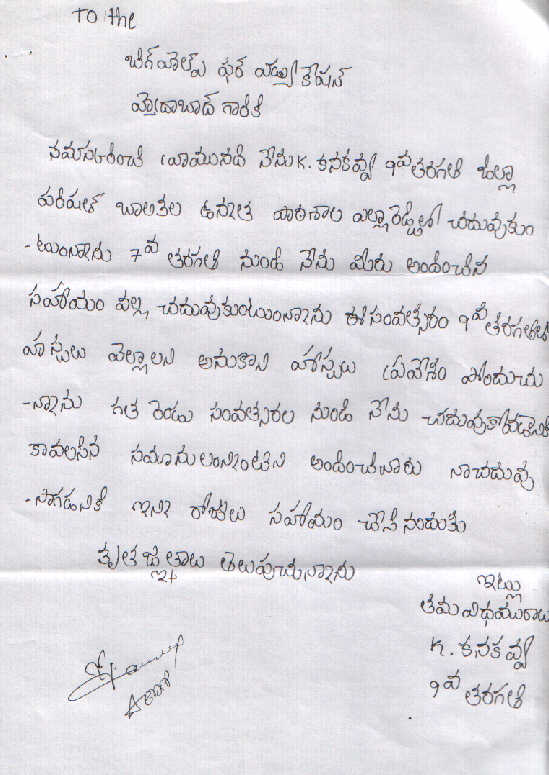 To the
బిగ్ హెల్ప్ ఫర్ ఎడ్యు కేషన్
హైదాబాద్ గారికి
నమస్కరించి వ్రాయునది నేను K. కనకవ్వ 9వ తరగతి జిల్లా
పరిషత్ బాలికల ఉన్నత పాఠశాల ఎల్లారెడ్డిలో చదువుకుం
-టున్నాను 7వ తరగతి నుండి నేను మీరు అందించిన
సహాయం వల్ల చదువుకుంటున్నాను ఈ సంవత్సరం 9వ తరగతికి
హాస్టలు వెల్లాలని అనుకొని హాస్టలు ప్రవేశం పొందుచు
-న్నాను గత రెండు సంవత్సరల నుండి నేను
కావలసిన అందించినారు నాచదువు
-సాగడనికి ఇన్ని రోజులు సహాయం చేసి నందుకు
కృతజ్ఞతలు తెలుపుచున్నాను
ఇట్లు
తమ విధేయురాలు
K. కనకవ్వ
9వ తరగతి